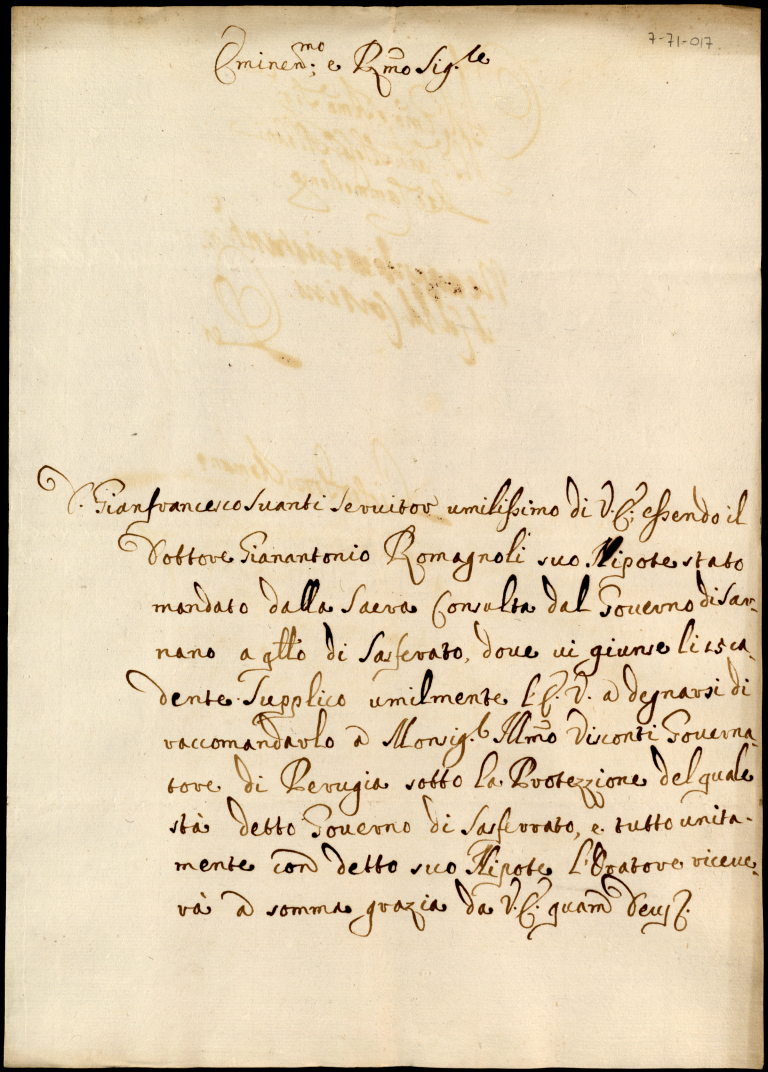 7-71-017
Eminen.mo e Rmo Sig.le
D. Gianfrancesco Suanti Seruitor umilissimo di V.E; essendo il
Dottore Gianantonio Romagnoli suo Nipote stato
mandato dalla Sacra Consulta dal Gouerno di Sar-
nano a qllo di Sasferato, doue ui giunse li 25 ca-
dente. Supplico umilmente l'E.V. a degnarsi di
raccomandarlo a Monsig.e Illmo Visconti Gouerna-
tore di Perugia sotto la Protezzione del quale
stà detto Gouerno di Sasferrato, e tutto unita-
mente con detto suo Nipote L'Oratore riceue-
rà a somma grazia da V.E. quam Deus &.